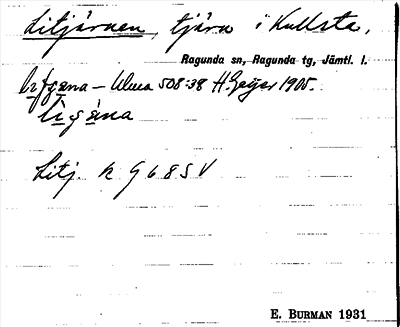 Litjärnen, tjärn i Kullsta,
Ragunda sn, Ragunda tg, Jämtl. l.
– Ulma 508:38 H. Geijer 1905.
Litj. k G 68 SV
E. BURMAN 1931